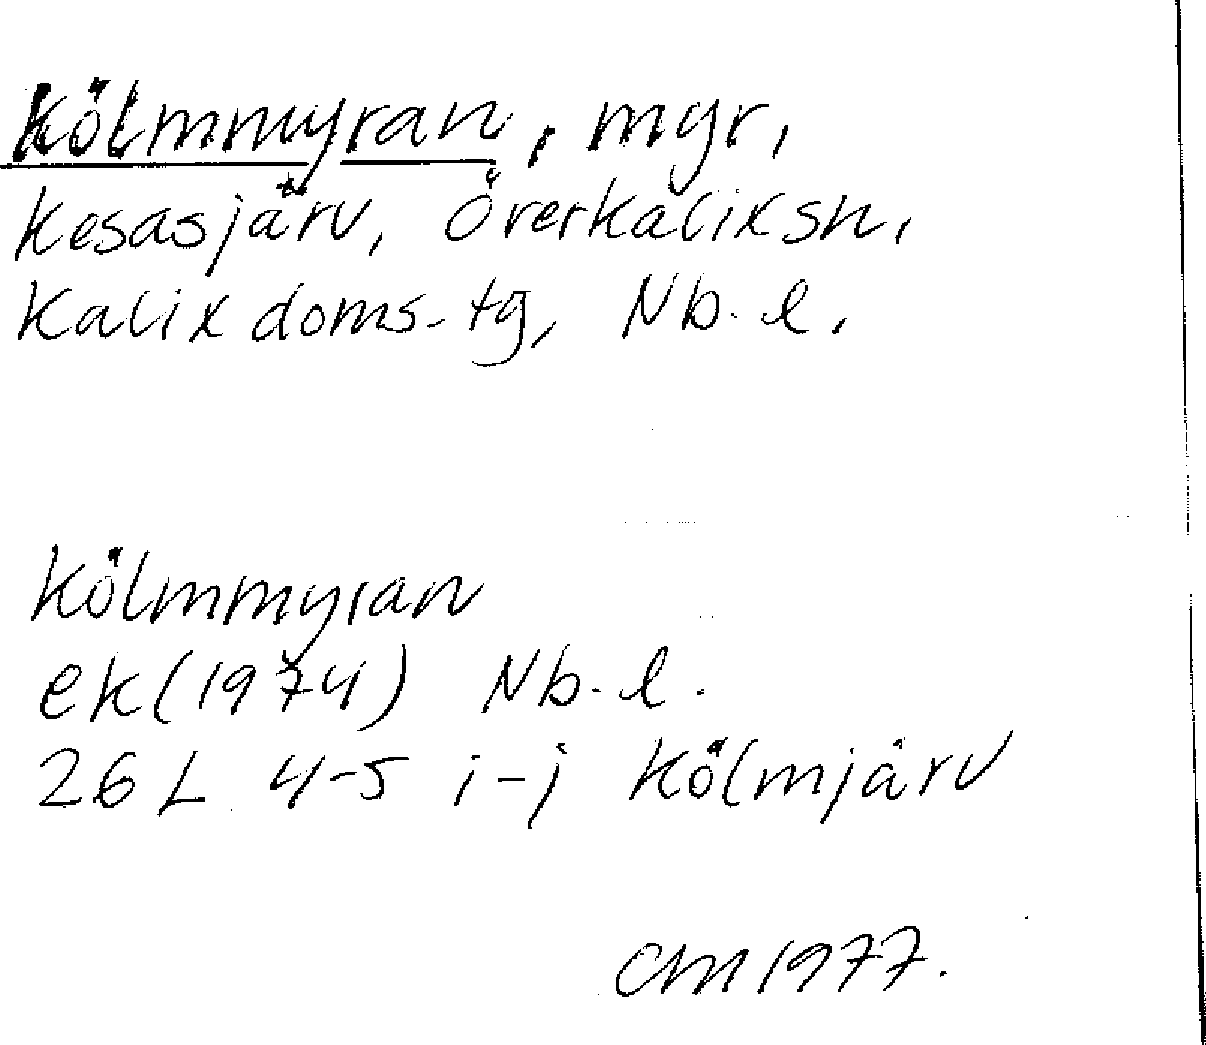 Kölmmyran, myr,
Kesasjärv, Överkalix sn,
Kalix doms.tg, Nb. l.
Kölmmyran
ek(1974) Nb. l.
26 L 4-5 i-j Kölmjärv
CM 1977.